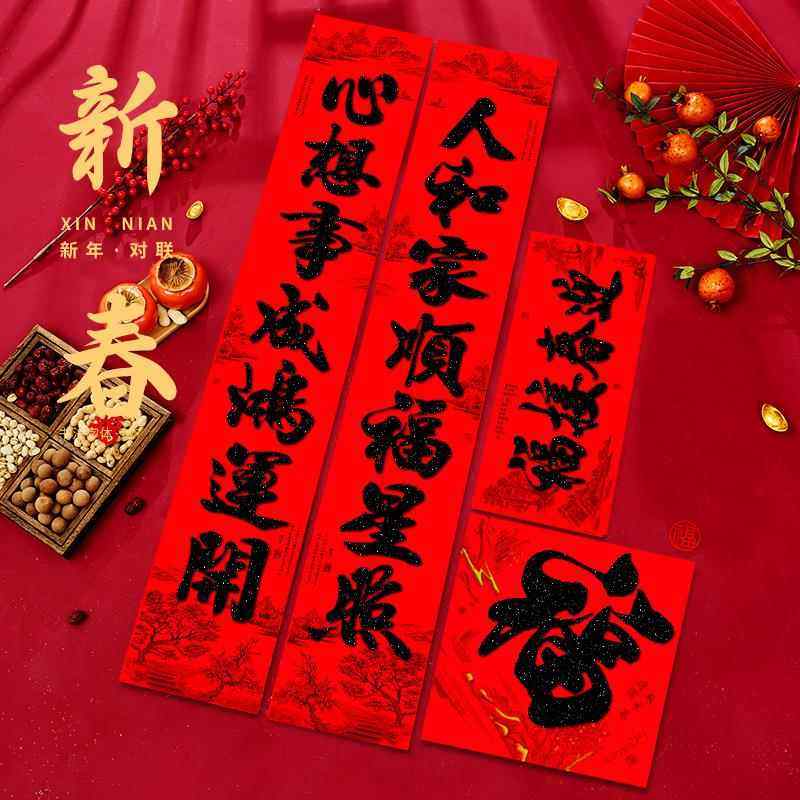 新春
XIN NIAN
新年·对联
人和家順福星照
心想事成鴻運開
迎春接福
福